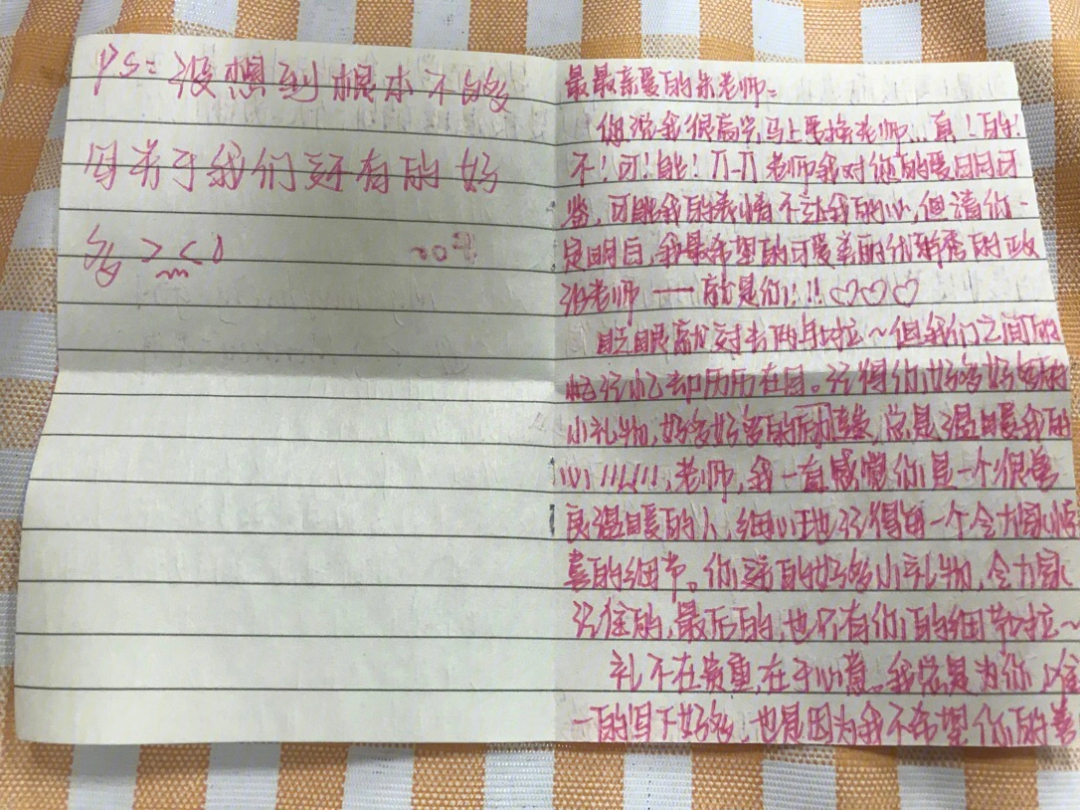 PS：没想到根本不够
用 关于我们还有的好
多 > <
最最亲爱的朱老师：
您说我很高兴马上要换老师…真！的！
不！可！能！丌-丌 老师我对您的爱日月可
鉴，可能我的表情不达我的心，但请你一
定明白，我最希望的可爱美丽优雅善的政
治老师——就是你！！！♡♡♡
眨眼就过去两年啦～但我们之间的
记忆却历历在目。记得你好多好多的
小礼物，好多好多的，总是温暖我的
心!!!!!! 老师，我一直感觉你是一个很善
良温暖的人，细心地记得每一个令大家心
的细节。你送的好多小礼物，令大家
记住的，最后的，也只有你的细节啦～
礼不在贵重，在于心意。我总是为你唯
一的写下好多，也是因为我不希望你的善